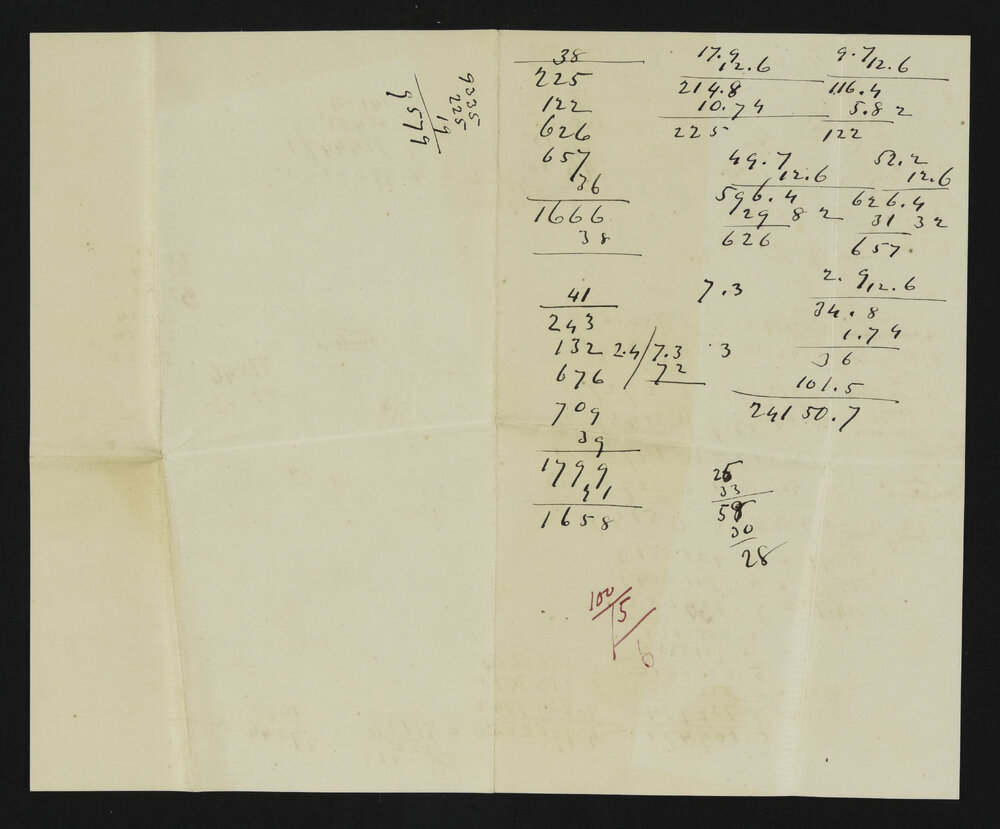 9335
225
19
9579
38
225
122
626
657
36
1666
38
41
243
132 2.4/7.3 .3
676 72
709
39
1799
41
1658
17.9
12.6
214.8
10.74
225
9.7
12.6
116.4
5.82
122
49.7
12.6
596.4
29 82
626
52.2
12.6
626.4
31 32
657
7.3
2.9
12.6
34.8
1.74
36
101.5
24150.7
25
33
58
30
28
100
15
6